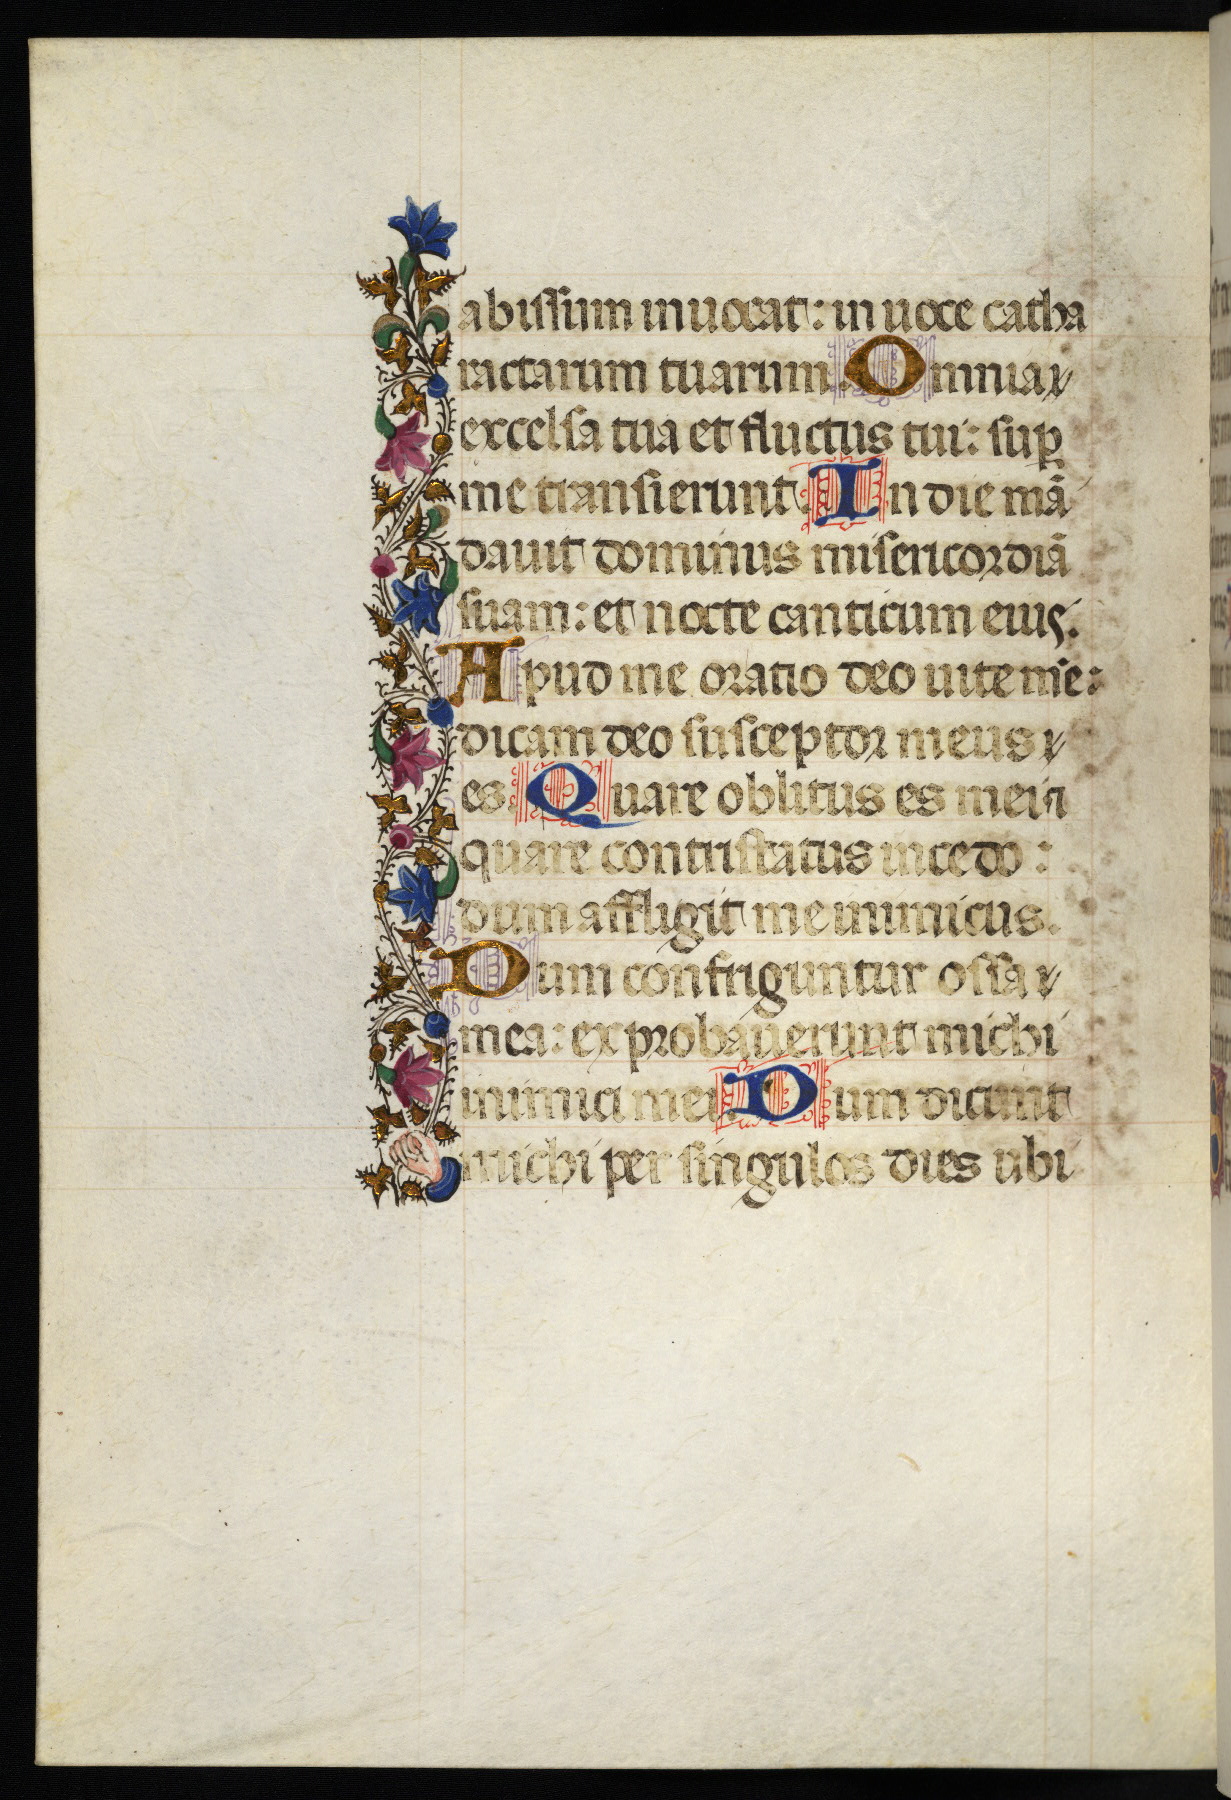 abissum inuocat: in uoce catha
ractarum tuarum. Omnia
excelsa tua et fluctus tui: sup̱
me transierunt. In die mā
davit dominus misericordiā
suam: et nocte canticum eius.
Apud me oratio deo uite mēe:
dicam deo susceptor meus
es. Quare oblitus es mei
quare contristatus incedo:
dum affligit me inimicus.
Dum confriguntur ossa
mea: exprobaverunt michi
inimici mei. Dum dicunt
michi per singulos dies ubi